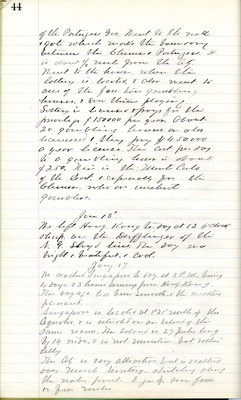 44
of the Portuguese Gov. Went to the wall
& gate which marks the boundary
between the Chinese & Portuguese. It
is about ½ mile from the City.
Went to the house where the
Lottery is located & also went to
one of the Fan Tan gambling
houses, & saw them playing.
Lottery is licensed & pays for the
privilege $150000 per year. About
20 gambling houses are also
licensed & they pay $450000
a year license. The cost per day
to a gambling house is about
$250. This is the Monte Carlo
of the East, especially for the
Chinese who are inveterate
Gamblers.
Jan 13"
We left Hong Kong to day at 12 o'clock
ship
of the
N. G. Lloyd line. The Day was
bright & beautiful & cool.
Jan 17
We reached Singapore to day at
4 days 23 hours coming from Hong Kong.
The voyage has been smooth & the weather
pleasant.
Singapore is located at
north of the
Equator & is situated on an island of the
same name. The Island is 27 miles long
by 14 wide, & is not mountain but rather
hilly
The City is very attractive but is scattered
over much territory stretching along
the water front
or five miles